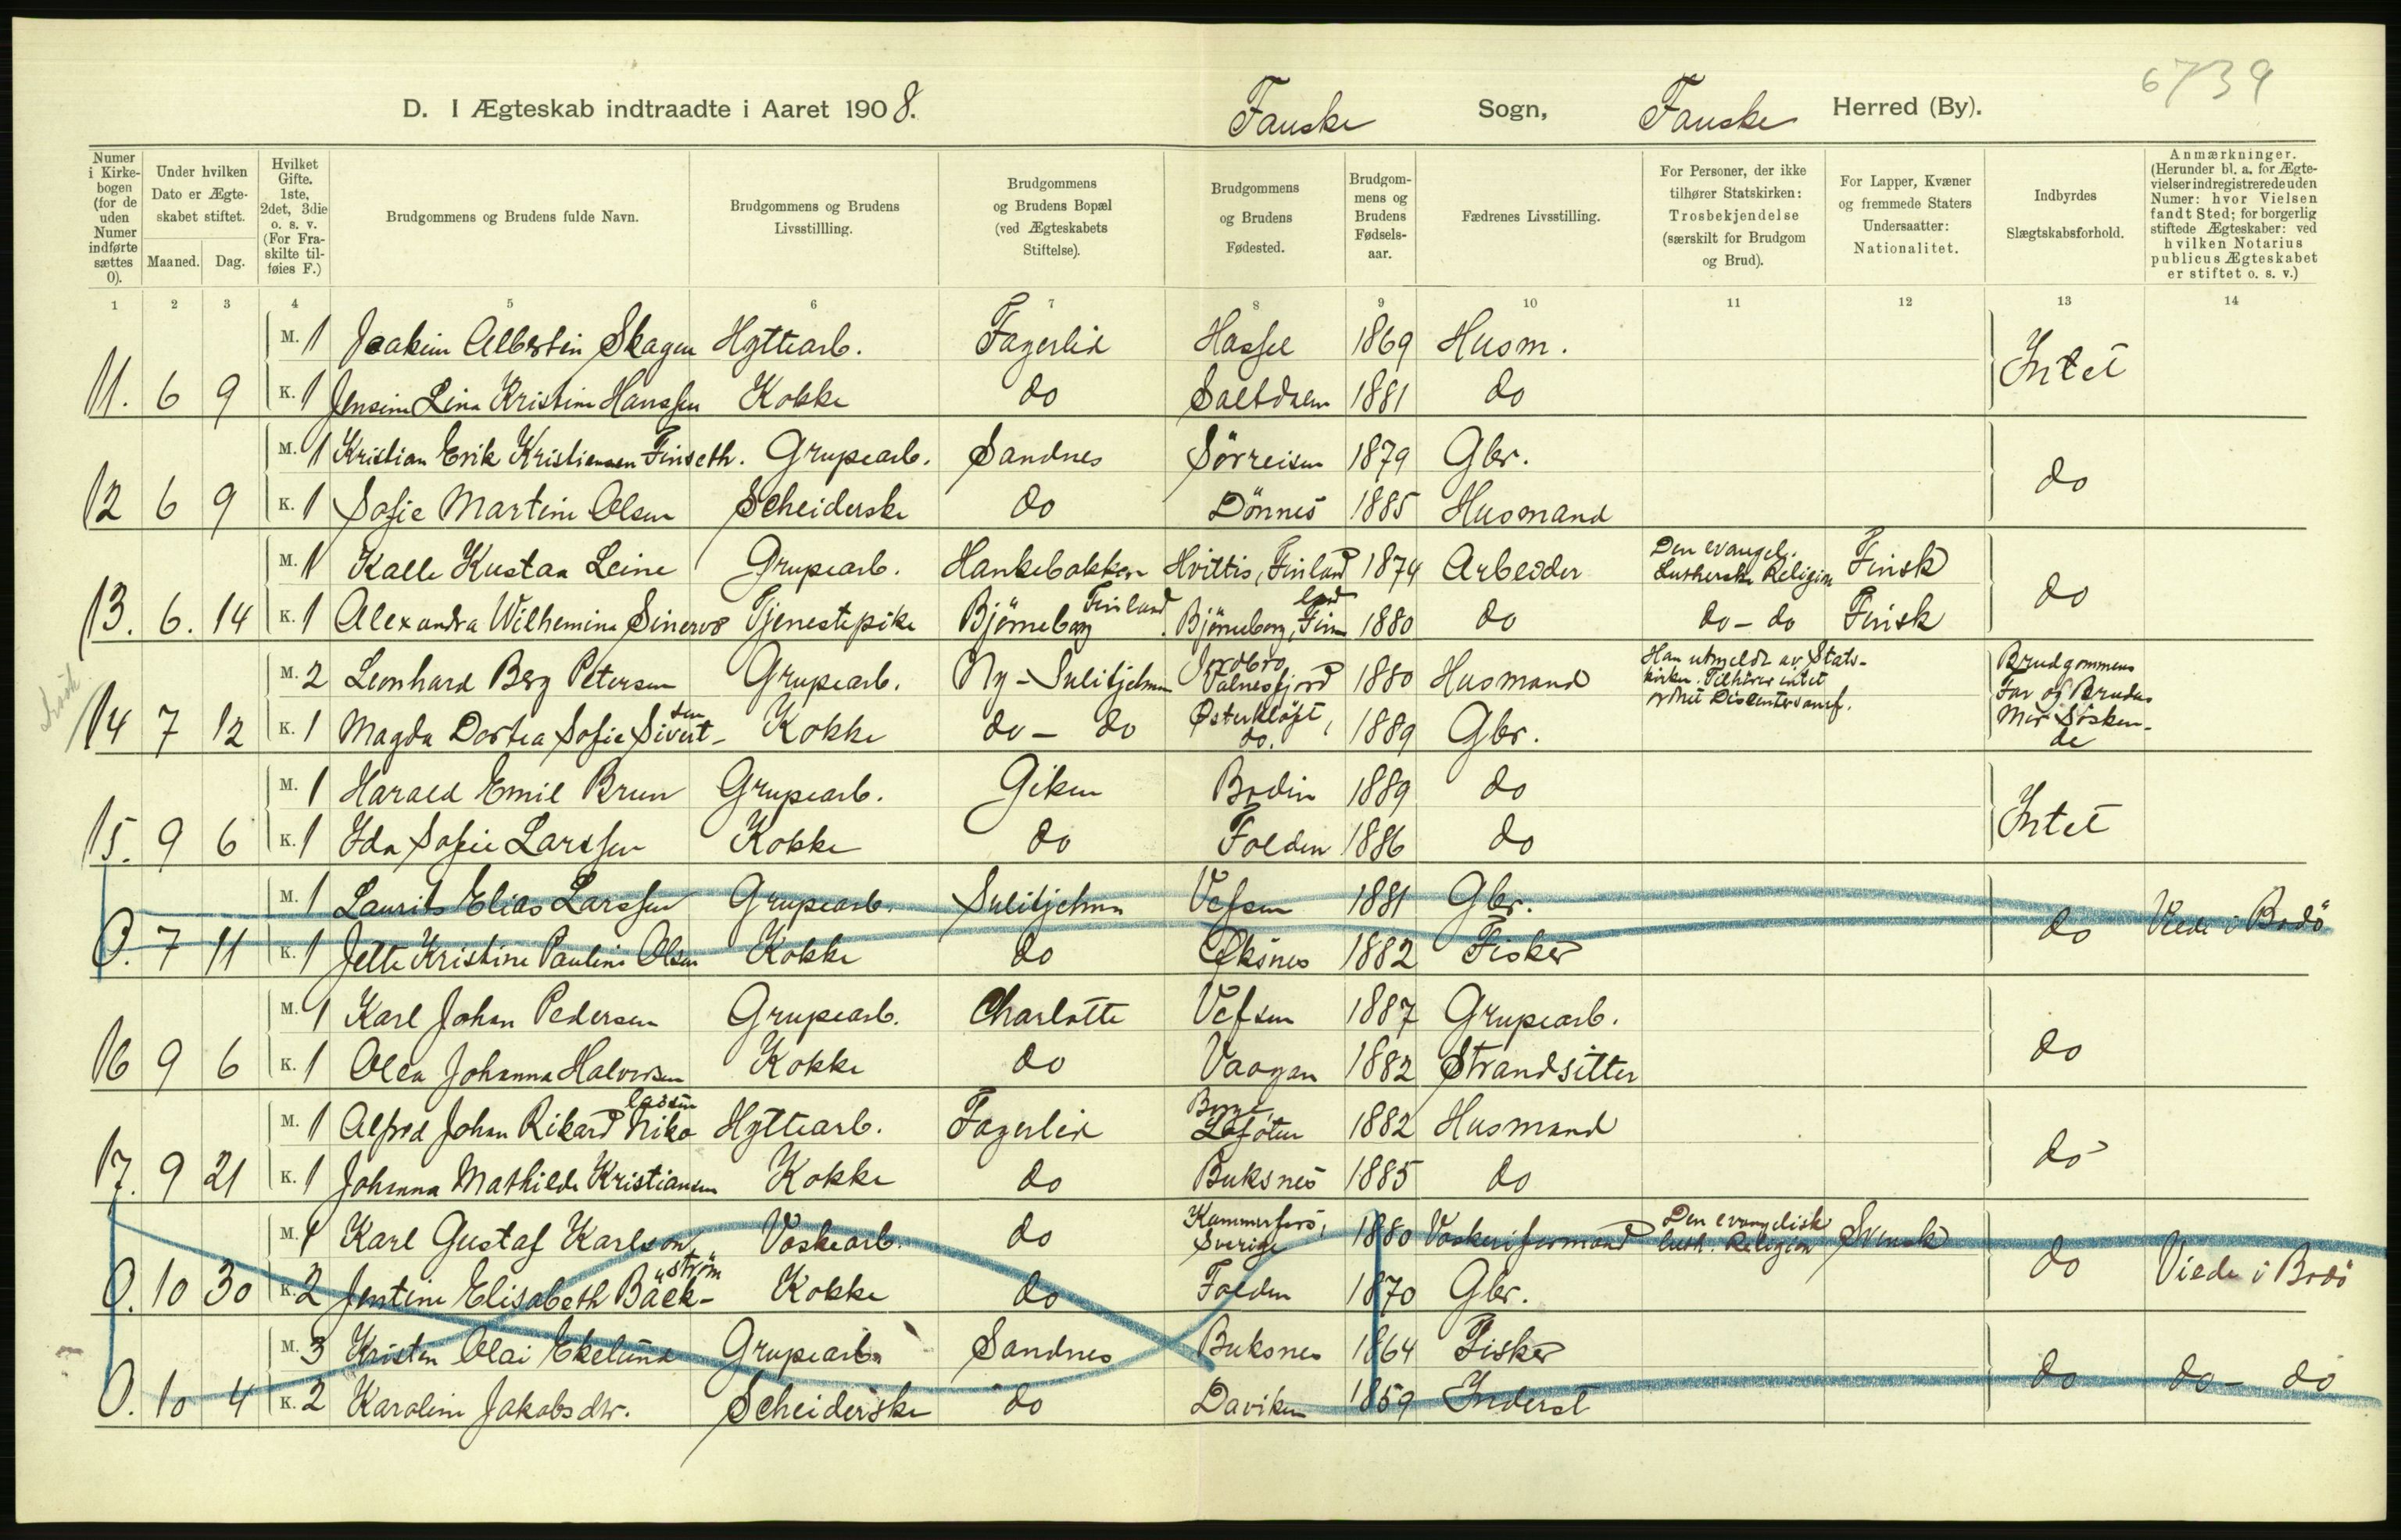 6739
D. I Ægteskab indtraadte i Aaret 1908. Fauske Sogn, Fauske Herred (By).
Numer i Kirkebogen (for de uden Numer indførte sættes 0).
Under hvilken Dato er Ægteskabet stiftet.
Maaned. Dag.
Hvilket Gifte. 1ste, 2det, 3die o. s. v. (For Fraskilte tilføies F.)
Brudgommens og Brudens fulde Navn.
Brudgommens og Brudens Livsstillling.
Brudgommens og Brudens Bopæl (ved Ægteskabets Stiftelse).
Brudgommens og Brudens Fødested.
Brudgommens og Brudens Fødselsaar.
Fædrenes Livsstilling.
For Personer, der ikke tilhører Statskirken: Trosbekjendelse (særskilt for Brudgom og Brud).
For Lapper, Kvæner og fremmede Staters Undersaatter: Nationalitet.
Indbyrdes Slægtskabsforhold.
Anmærkninger. (Herunder bl. a. for Ægtevielser indregistrerede uden Numer: hvor Vielsen fandt Sted; for borgerlig stiftede Ægteskaber: ved hvilken Notarius publicus Ægteskabet er stiftet o. s. v.)
1 2 3 4 5 6 7 8 9 10 11 12 13 14
M. 1 Joakim Albertin Skagen Hyttearb. Fagerlid Hassel 1869 Husm. Intet
11. 6 9 K. 1 Jensine Lina Kristine Hanssen Kokke do Saltdalen 1881 do
M. 1 Kristian Erik Kristiansen Finseth. Grupearb. Sandnes Sörreisen 1879 Gbr. do
12 6 9 K. 1 Sofie Martine Olsen Scheiderske do Dönnes 1885 Husmand
M. 1 Kalle Kustaa Leine Grupearb. Hankebakken Hvittis, Finland 1874 Arbeider Den evangel. Lutherske Religion Finsk do
13. 6. 14 K. 1 Alexandra Wilhemine Sinervo Tjenestepike Björneborg Finland Björneborg, Finland 1880 do do - do Finsk
M. 2 Leonhard Berg Petersen Grupearb. Ny-Sulitjelma Jordbro Valnesfjord 1880 Husmand Han utmeldt av Statskirken. Tilhörer intet ordnet Dissentersamf. Brudgommens Far og Brudens Mor Söskende
14 7 12 K. 1 Magda Dortea Sofie Sivertsen Kokke do - do Østerkløft, do. 1889 Gbr.
M. 1 Harald Emil Brun Grupearb. Giken Bodin 1889 do Intet
15. 9 6 K. 1 Ida Sofie Larssen Kokke do Folden 1886 do
M. 1 Laurits Elias Larssen Grupearb. Sulitjelma Vefsen 1881 Gbr. do Viede i Bodö
0. 7 11 K. 1 Jette Kristine Pauline Olsen Kokke do Øksnes 1882 Fisker
M. 1 Karl Johan Pedersen Grupearb. Charlotte Vefsen 1887 Grupearb. do
16 9 6 K. 1 Olea Johanna Halvorsen Kokke do Vaagan 1882 Strandsitter
M. 1 Alfred Johan Rikard Nikolassen Hyttearb. Fagerlid Borge, Lofoten 1882 Husmand do
17. 9 21 K. 1 Johanna Mathilde Kristiansen Kokke do Buksnes 1885 do
M. 1 Karl Gustaf Karlson Vaskearb. do Kammerfors, Sverige 1880 Vaskeriformand Den evangelisk luth. Religion Svensk do Viede i Bodö
0. 10 30 K. 2 Jentine Elisabeth Bäckström Kokke do Folden 1870 Gbr.
M. 3 Kristen Olai Ekelund Grupearb. Sandnes Buksnes 1864 Fisker do do - do
0. 10 4 K. 2 Karoline Jakobsdtr. Scheiderske do Daviken 1859 Inderst